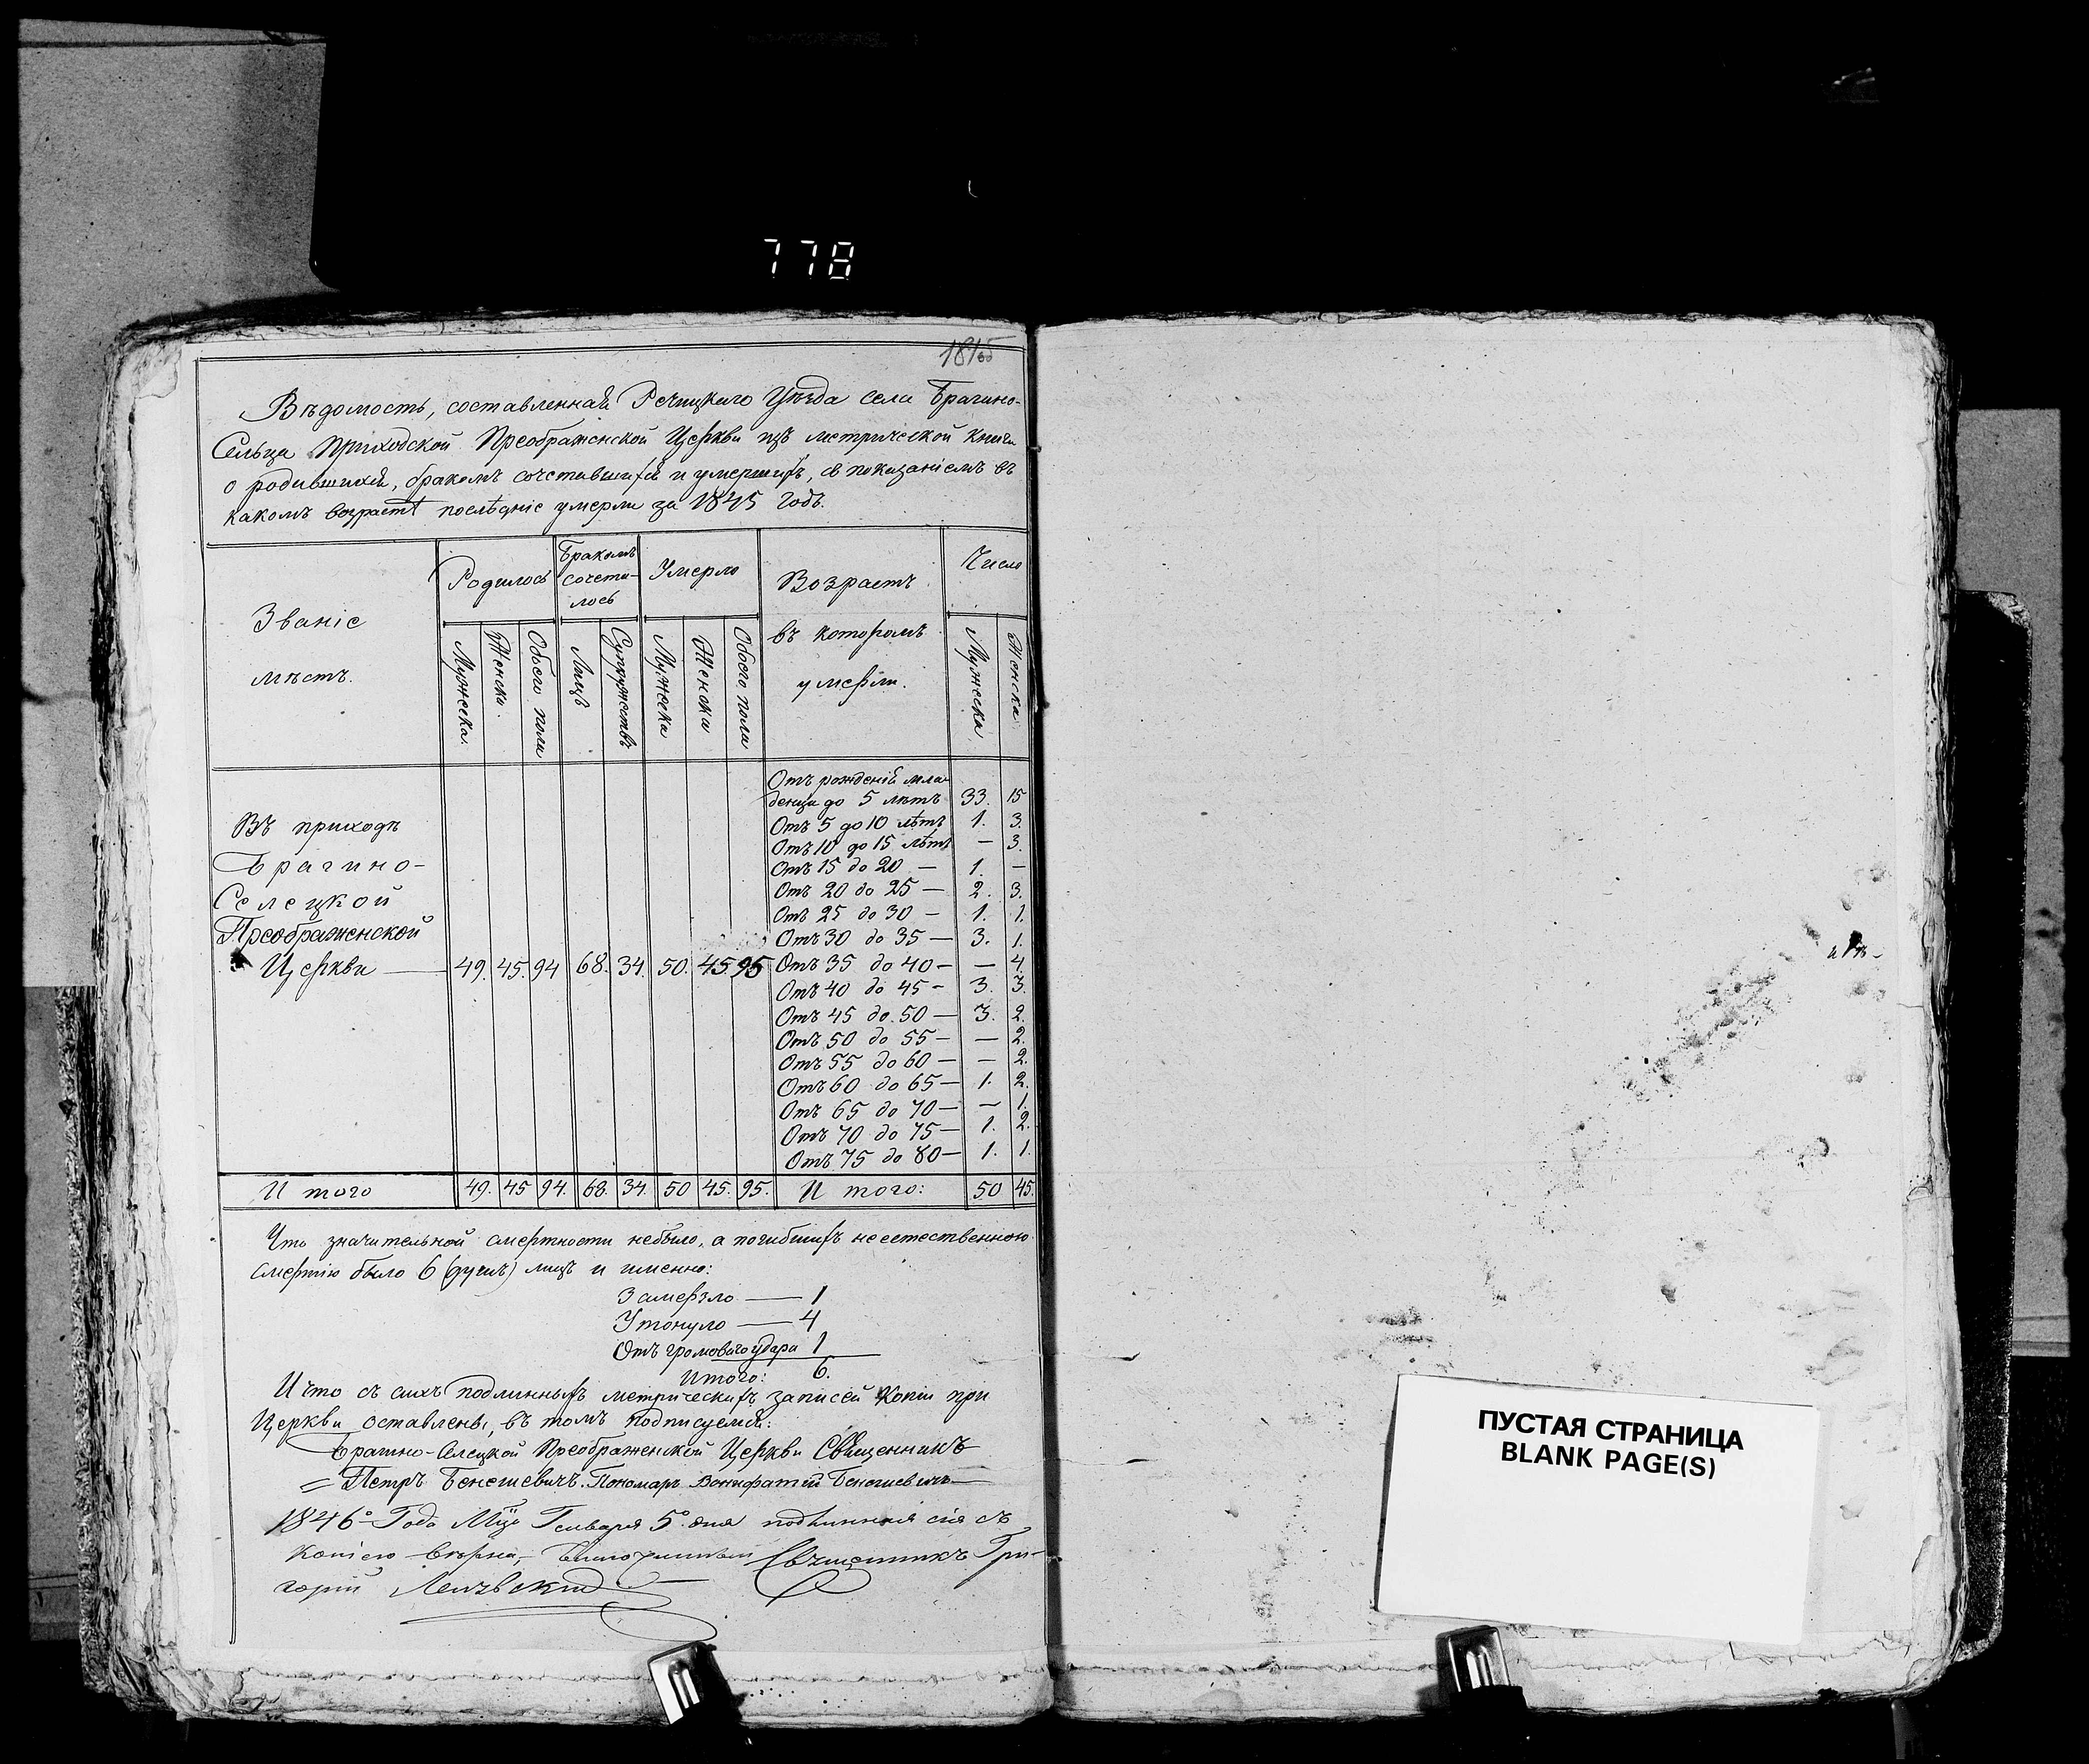 778
1845
Вѣдомость, составленная Рѣчицкаго Уѣзда села Брагино-
Сельца Приходской Преображенской Церкви изъ метрической книги
о родившихся, бракомъ сочетавшихся и умершихъ, съ показаніемъ въ
какомъ возрастѣ послѣдніе умерли за 1845 годъ.
Званіе
мѣстъ.
Родилось
Бракомъ
сочета-
лось
Умерло
Возрастъ
въ которомъ
умерли.
Число
Мужеска.
Женска.
Обоего пола
Лицъ
Супружествъ
Мужеска
Женска
Обоего пола
Мужеска
Женска
Въ приходѣ
Брагино-
Селецкой
Преображенской
Церкви — 49. 45. 94 68. 34. 50. 45 95
Отъ рожденія мла-
денца до 5 лѣтъ 33. 15
Отъ 5 до 10 лѣтъ 1. 3.
Отъ 10 до 15 лѣтъ — 3.
Отъ 15 до 20 — 1. —
Отъ 20 до 25 — 2. 3.
Отъ 25 до 30 — 1. 1.
Отъ 30 до 35 — 3. 1.
Отъ 35 до 40 — — 4.
Отъ 40 до 45 — 3. 3.
Отъ 45 до 50 — 3. 2.
Отъ 50 до 55 — — 2.
Отъ 55 до 60 — — 2.
Отъ 60 до 65 — 1. 2.
Отъ 65 до 70 — — 1.
Отъ 70 до 75 — 1. 2.
Отъ 75 до 80 — 1. 1.
Итого 49. 45 94. 68. 34. 50 45. 95. Итого: 50 45.
Что значительной смертности небыло, а погибшихъ неестественною
смертію было 6 лицъ и именно:
Замерзло — 1
Утонуло — 4
Отъ громоваго удара 1
Итого: 6.
И что съ сихъ подлинныхъ метрическихъ записей копіи при
Церкви оставлены, въ томъ подписуемся:
Брагино-Селецкой Преображенской Церкви Священникъ
= Петръ Бенешевичъ. Пономарь Вонифатій Бенешевичъ —
1846º Года Мца Генваря 5º дня подлинная сія съ
копіею вѣрна, — Благочинный Священникъ Гри-
горій
ПУСТАЯ СТРАНИЦА
BLANK PAGE(S)